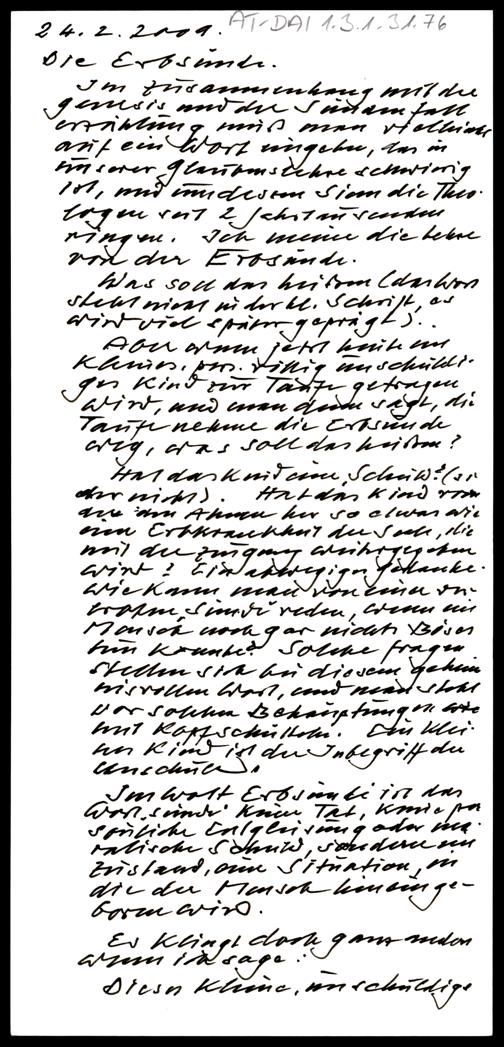 AT-DAI 1.3.1.31.76
24.2.2009.
Die Erbsünde.
Im Zusammenhang mit der
Genesis und der Sündenfall
erzählung muß man vielleicht
auf ein Wort eingehen, das in
unserer Glaubenslehre schwierig
ist, und um dessen Sinn die Theo-
logen seit 2 Jahrtausenden
ringen. Ich meine die Lehre
von der Erbsünde.
Was soll das heißen (das Wort
steht nicht in der hl. Schrift, es
wird viel später geprägt)..
Aber wenn jetzt heute ein
kleines, pers. völlig unschuldi-
ges Kind zur Taufe getragen
wird, und man dann sagt, die
Taufe nehme die Erbsünde
weg, was soll das heißen?
Hat das Kind eine „Schuld"? (si-
cher nicht). Hat das Kind von
den Ahnen her so etwas wie
eine Erbkrankheit der Seele, die
mit der Zeugung weitergegeben
wird? Ein abwegiger Gedanke.
Wie kann man von einer er-
erbten „Sünde" reden, wenn ein
Mensch noch gar nichts Böses
tun konnte? Solche Fragen
stellen sich bei diesem geheim
nisvollen Wort, und man steht
vor solchen Behauptungen wie
mit Kopfschütteln. Ein klei-
nes Kind ist der Inbegriff der
Unschuld.
Im Wort Erbsünde ist das
Wort „Sünde" keine Tat, keine per
sönliche Entgleisung oder mo-
ralische Schuld, sondern ein
Zustand, eine Situation, in
die der Mensch hineinge-
boren wird.
Es klingt doch ganz anders
wenn ich sage:
Dieses kleine, unschuldige